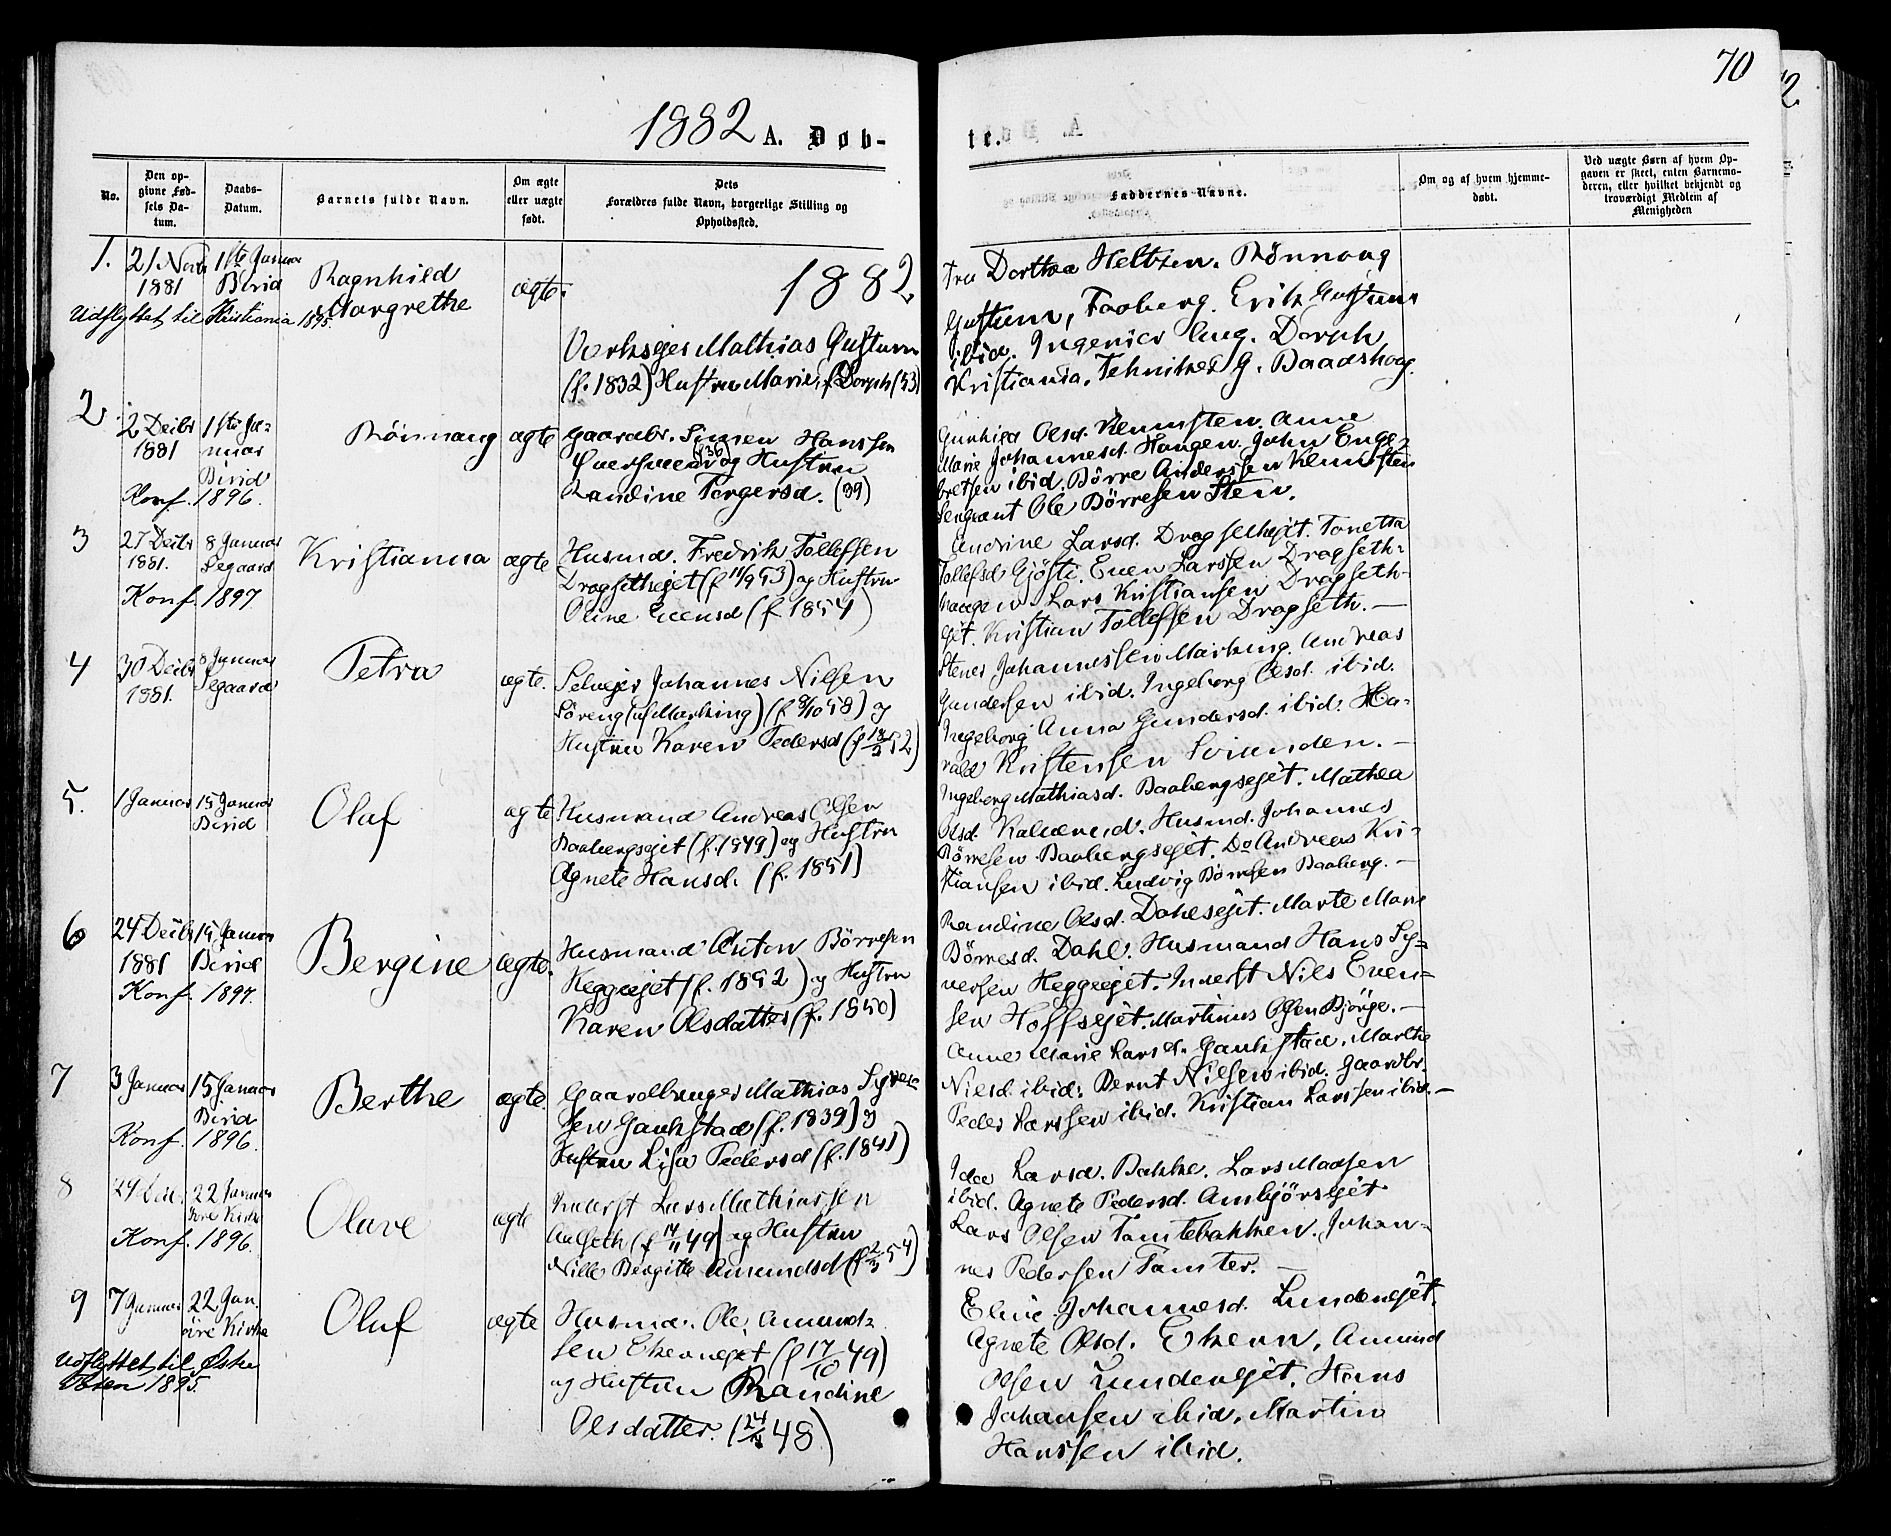 70
1882 A. Døb-
te.
No.
Den op-
givne Fød-
sels Da-
tum.
Daabs-
Datum.
Barnets fulde Navn.
Om ægte
eller uægte
født.
Dets
Forældres fulde Navn, borgerlige Stilling og
Opholdssted.
Faddernes Navne.
Om og af hvem hjemme-
døbt.
Ved uægte Børn af hvem Op-
gaven er skeet, enten Barnemo-
deren, eller hvilket bekjendt og
troværdigt Medlem af
Menigheden
1.
21 Novb
1881
1ste Januar
Birid
Udflyttet til Kristiania 1895.
Ragnhild
Margrethe
ægte.
1882
Værkseier Mathias Gustum
(f. 1832) Hustru Marie, f. Dorph (53)
Fru Dorthea Heltzen. Rönnoug
Gustum, Faaberg. Erik Gustum
ibid. Ingeniør Aug. Dorph
Kristiania, Tekniker G. Baadshaug.
2
2 Decbr
1881
1ste Ja-
nuar
Birid
Konf. 1896.
Rönnaug
ægte
Gaardbr. Simen Hanssen
Sversveen (36) og Hustru
Randine Torgersd. (39)
Gunhild Olsd. Klemmsten. Anne
Marie Johannesd. Haugen. John Enge-
bretsen ibid. Börre Anderssen Klemmsten
Sergeant Ole Börresen Sten.
3
27 Decbr
1881.
8 Januar
Segaard
Konf. 1897
Kristianna
ægte
Husmd. Fredrik Tollefsen
Dragsethejet (f 11/9 53) og Hustru
Oline Evensd (f. 1854)
Andrine Larsd. Dragsethejet. Tonetta
Tollefsd Gjöste. Even Larssen Dragseth-
haugen. Lars Kristiansen Dragseth-
ejet. Kristian Tollefsen Dragseth. —
4
30 Decbr
1881.
8 Januar
Segaard
Petra
ægte.
Selveier Johannes Nilsen
Söreng (af Marking) (f 9/10 58) og
Hustru Karen Pedersd (f 13/2 52)
Stener Johannessen Marking. Andreas
Gundersen ibid. Ingeborg Olsd. ibid.
Ingeborg Anna Gundersd. ibid. Ha-
rald Kristensen Svianden. —
5.
1 Januar
15 Januar
Birid
Olaf
ægte
Husmand Andreas Olsen
Baabergsejet (f. 1849) og Hustru
Agnete Hansd. (f. 1851)
Ingeborg Mathiasd. Baabergsejet. Mathea
Olsd. Kalverud. Husmd. Johannes
Börresen Baabergsejet. Do Andreas Kri-
stiansen ibid. Ludvig Börresen Baaberg. —
6
24 Decbr
1881
15 Januar
Birid
Konf. 1897.
Bergine
ægte.
Husmand Anton Börresen
Heggeejet (f. 1852) og Hustru
Karen Olsdatter (f. 1850)
Randine Olsd. Dahlsejet. Marte Marie
Börresd. Dahl. Husmand Hans Sy-
versen Heggeejet. Inderst Nils Even-
sen Hoffsejet. Martinus Olsen Björge. —
7
3 Januar
15 Januar
Birid
Konf. 1896.
Berthe
ægte.
Gaardbruger Mathias Syver-
sen Gaukstad (f. 1839) og
Hustru Lisa Pedersd (f. 1841)
Anne Marie Larsd. Gaukstad. Marthe
Nilsd. ibid. Bernt Nilsen ibid. Gaardbr.
Peder Larssen ibid. Kristian Larssen ibid. —
8
24 Dec.
22 Januar
Vore Kirke
Konf. 1896.
Olave
ægte
Inderst Lars Mathiassen
Aalseth (f 14/11 49) og Hustru
Nille Birgitte Amundsd (f 2/3 54)
Idae Larsd. Bakke. Lars Madsen
ibid. Agnete Pedersd. Ambjörsejet
Lars Olsen Tomtebakken. Johan-
nes Pedersen Tomter. —
9
7 Januar
22 Jan.
Vore Kirke
Udflyttet til Östre
Toten 1895.
Oluf
ægte
Husmd. Ole Amund-
sen Ekernejet (f 17/10 49)
og Hustru Randine
Olsdatter. (24/12 48)
Eline Johannesd. Lundenejet.
Agnete Olsd. Ekern, Amund
Olsen Lundenejet. Hans
Johansen ibid. Martin
Hanssen ibid.